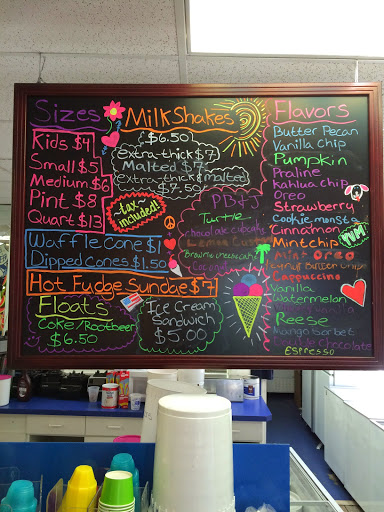 Sizes
Kids $4
Small $5
Medium $6
Pint $8
Quart $13
Waffle Cone $1
Dipped Cones $1.50
Hot Fudge Sundae $7
Floats
Coke/Rootbeer
$6.50
MilkShakes
($6.50)
(extra-thick $7)
Malted $7
extra thick & malted
$7.50
tax
included!
PB+J
Turtle
chocolate cupcake
Lemon
Brownie cheesecake
Coconut
Ice Cream
Sandwich
$5.00
Flavors
Butter Pecan
Vanilla Chip
Pumpkin
Praline
Kahlua chip
Oreo
Strawberry
Cookie monsta
Cinnamon
Mint chip
YUM
Mint Oreo
Cappuccino
Vanilla
Watermelon
Reese
Mango Sorbet
Chocolate
Espresso